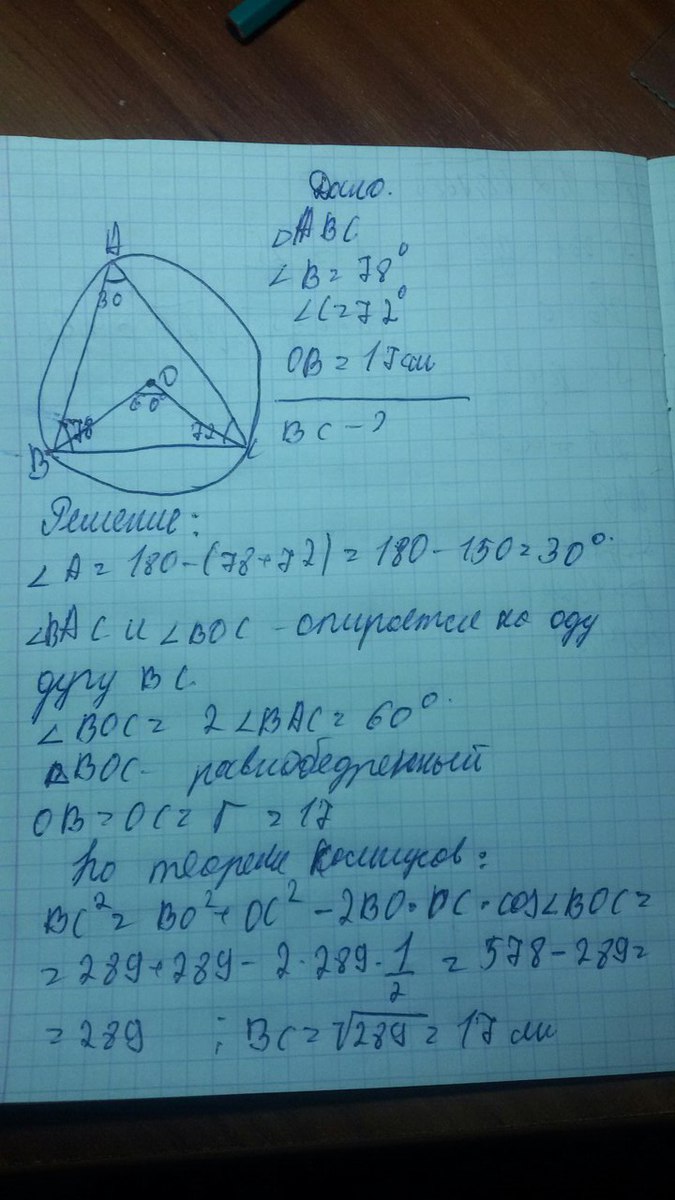 Дано.
△ABC
∠B = 78°
∠C = 72°
OB = 17 см
BC - ?
A
30
O
60°
78
72
B
C
Решение:
∠A = 180 - (78 + 72) = 180 - 150 = 30°.
∠BAC и ∠BOC - опирается на оду
дугу BC.
∠BOC = 2∠BAC = 60°.
△BOC - равнобедренный
OB = OC = r = 17
По теореме Косинусов:
BC² = BO² + OC² - 2BO · OC · cos∠BOC =
= 289 + 289 - 2 · 289 · 1/2 = 578 - 289 =
= 289 ; BC = √289 = 17 см